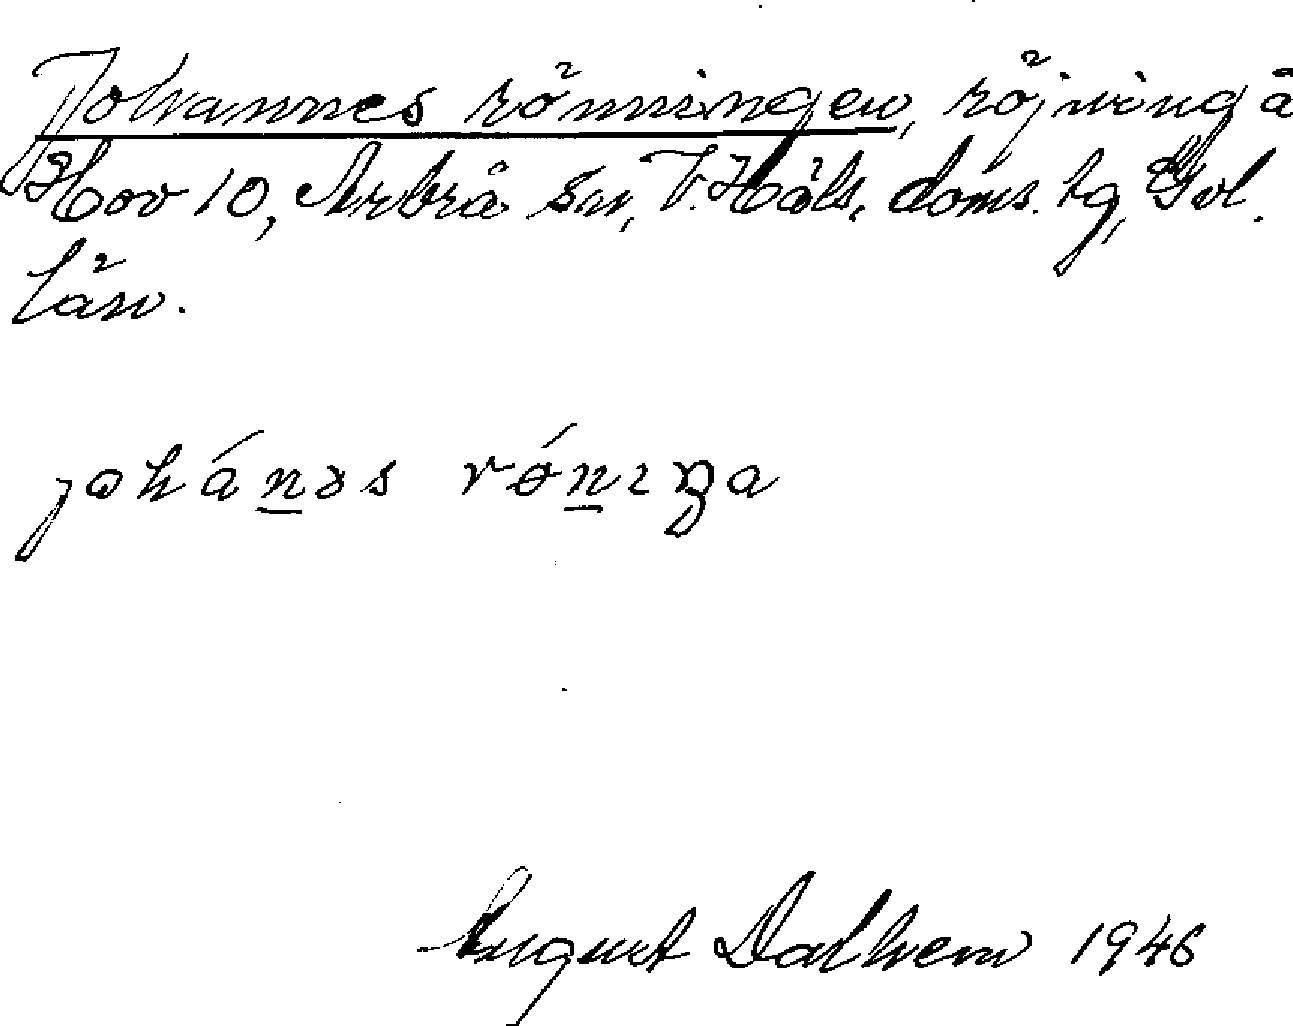 Johannes rönningen, röjning å
Hov 10, Arbrå sn, V. Häls. doms. lg, Gvl.
län.
johánəs rǿnıŋa
August Dalhem 1946